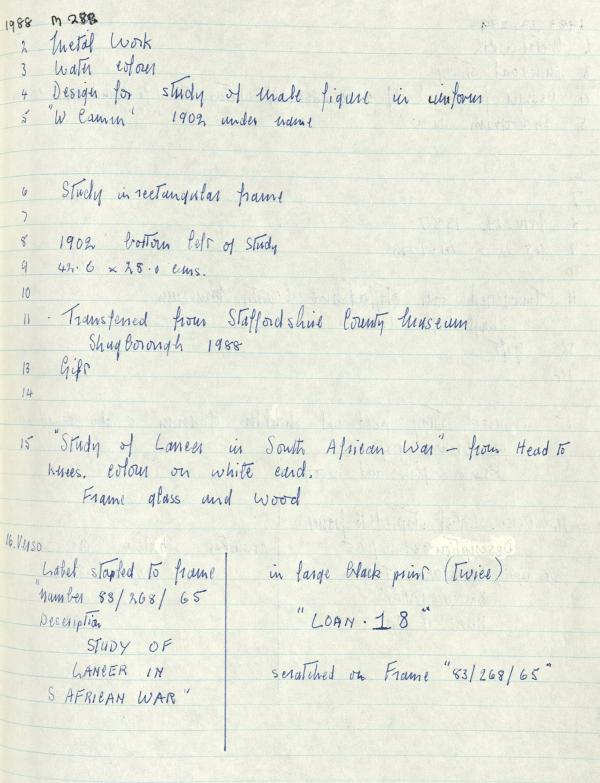 1988 M 288
2 Metal Work
3 Water colour
4 Design for study of male figure in uniform
5 "W Camm" 1902 under name
6 Study in rectangular frame
7
8 1902 bottom left of study
9 42.6 x 28.0 cms.
10
11 - Transferred from Staffordshire County Museum
Shugborough 1988
13 Gift
14
15 "Study of Lancer in South African War" - from Head to
knees. colour on white card.
Frame glass and wood
16. Verso
Label stapled to frame
"number 83/268/65
Description
STUDY OF
LANCER IN
S AFRICAN WAR"
in large black print (twice)
"LOAN . 1 8"
scratched on Frame "83/268/65"